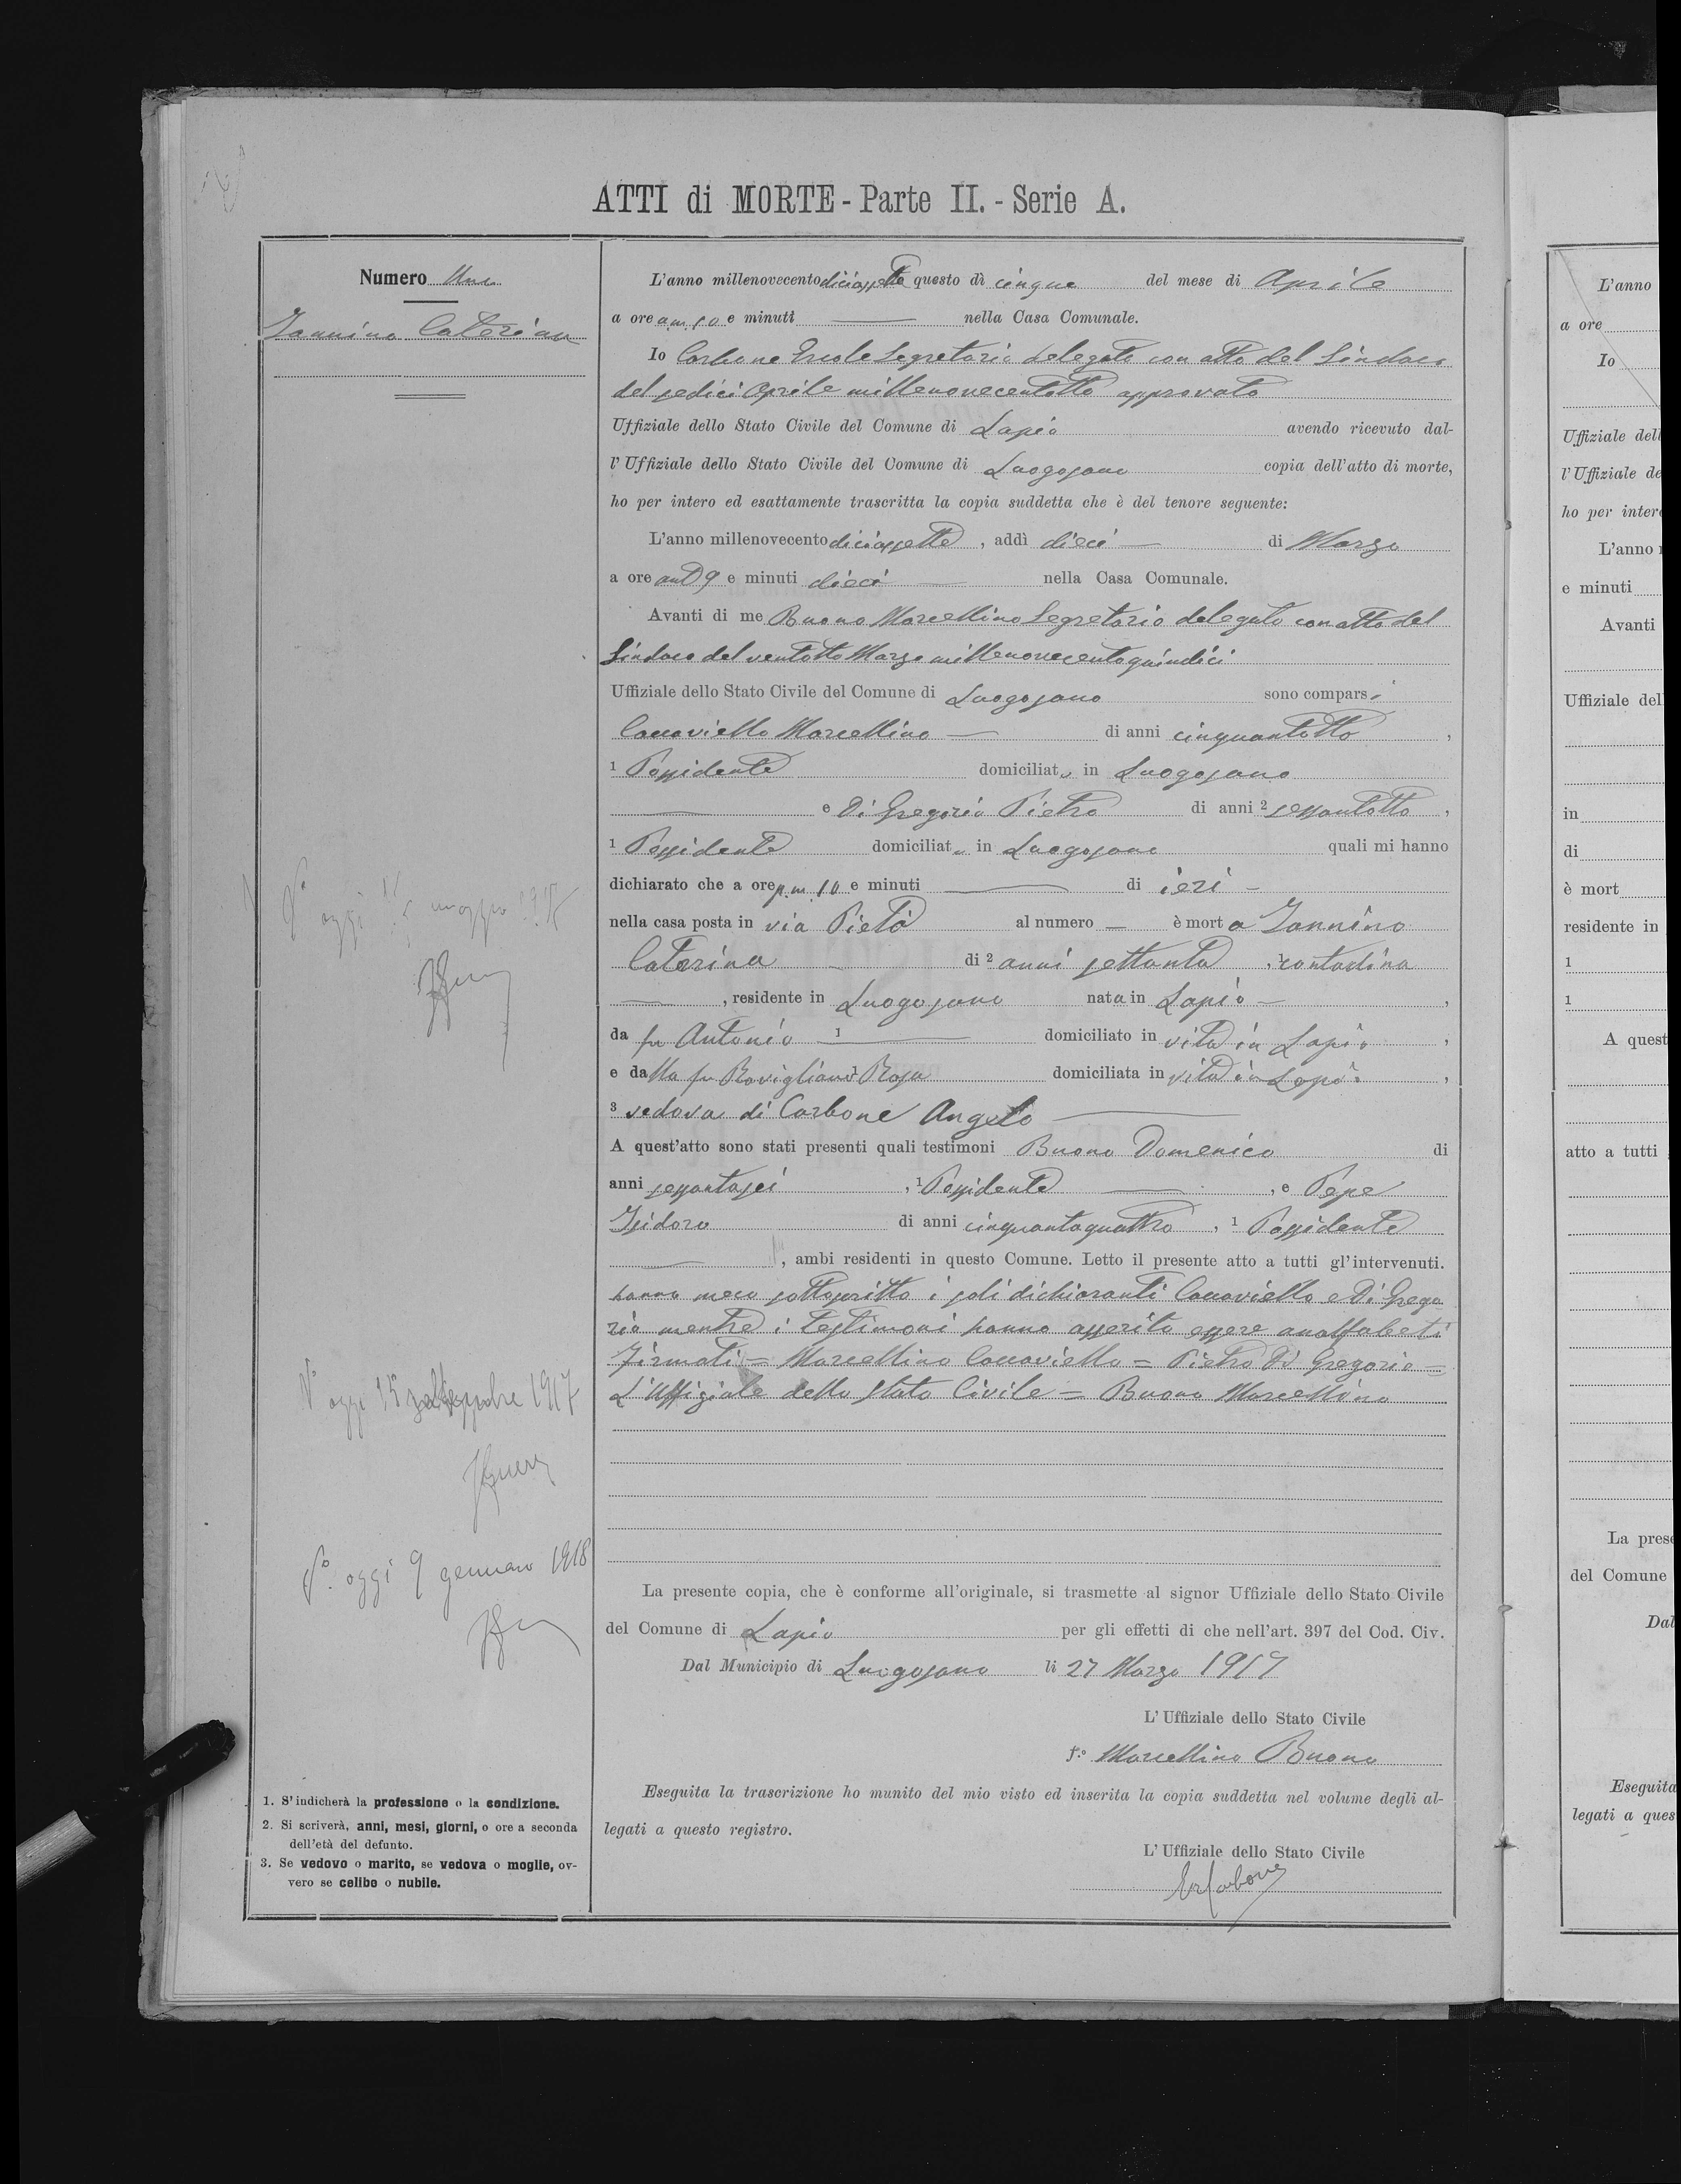 ATTI di MORTE - Parte II. - Serie A.
Numero Uno
Iannino Caterina
L'anno millenovecentodiciassette questo dì cinque del mese di Aprile
a ore a.m. 10 e minuti — nella Casa Comunale.
Io Carbone Ercole Segretario delegato con atto del Sindaco
del sedici Aprile millenovecentotto approvato
Uffiziale dello Stato Civile del Comune di Lapio avendo ricevuto dal-
l'Uffiziale dello Stato Civile del Comune di Luogosano copia dell'atto di morte,
ho per intero ed esattamente trascritta la copia suddetta che è del tenore seguente:
L'anno millenovecentodiciassette, addì dieci — di Marzo
a ore ant 9 e minuti dieci — nella Casa Comunale.
Avanti di me Buono Marcellino Segretario delegato con atto del
Sindaco del ventotto Marzo millenovecentoquindici
Uffiziale dello Stato Civile del Comune di Luogosano sono comparsi
Marcellino — di anni cinquantotto,
1 Possidente domiciliato in Luogosano
— e Di Gregorio Pietro di anni 2 sessantotto,
1 Possidente domiciliato in Luogosano quali mi hanno
dichiarato che a ore p.m. 10 e minuti — di ieri —
nella casa posta in via Pietà al numero — è morta Iannino
Caterina di 2 anni settanta, contadina
—, residente in Luogosano nata in Lapio —,
da fu Antonio 1 — domiciliato in vita in Lapio,
e dalla fu Rosa domiciliata in vita in Lapio,
3 vedova di Carbone Angelo —
A quest'atto sono stati presenti quali testimoni Buono Domenico di
anni sessantasei, 1 Possidente —, e Pepe
Isidoro di anni cinquantaquattro, 1 Possidente
—, ambi residenti in questo Comune. Letto il presente atto a tutti gl'intervenuti.
hanno meco sottoscritto i soli dichiaranti e Di Grego
rio mentre i testimoni hanno asserito essere analfabeti
Firmati = Marcellino = Pietro Di Gregorio =
L'Uffiziale dello Stato Civile = Buono Marcellino
La presente copia, che è conforme all'originale, si trasmette al signor Uffiziale dello Stato Civile
del Comune di Lapio per gli effetti di che nell'art. 397 del Cod. Civ.
Dal Municipio di Luogosano li 27 Marzo 1917
L'Uffiziale dello Stato Civile
f.o Marcellino Buono
Eseguita la trascrizione ho munito del mio visto ed inserita la copia suddetta nel volume degli al-
legati a questo registro.
L'Uffiziale dello Stato Civile
Er Carbone
Vo oggi maggio 1917
Vo oggi 15 settembre 1917
Vo. oggi 9 gennaio 1918
1. S'indicherà la professione o la condizione.
2. Si scriverà, anni, mesi, giorni, o ore a seconda
dell'età del defunto.
3. Se vedovo o marito, se vedova o moglie, ov-
vero se celibe o nubile.
L'anno
a ore
Io
Uffiziale dell
l'Uffiziale de
ho per inter
L'anno
e minuti
Avanti
Uffiziale del
in
di
è mort
residente in
1
1
A quest
atto a tutti
La prese
del Comune
Dal
Eseguita
legati a ques